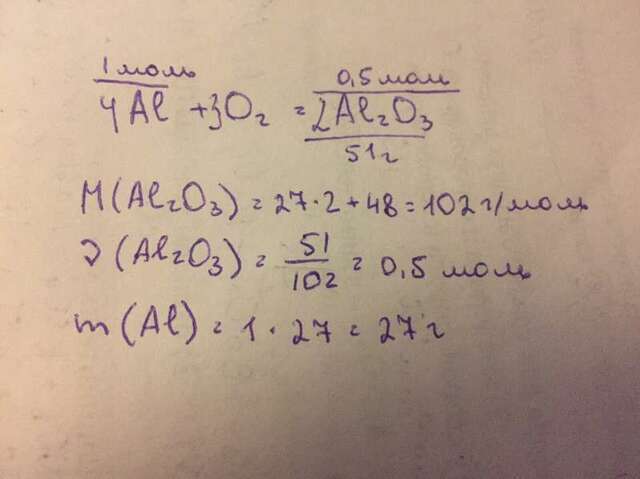 1 моль 0,5 мол
4Al + 3O₂ = 2Al₂O₃
51г
M(Al₂O₃) = 27·2+48=102 г/моль
ν(Al₂O₃) = 51/102 = 0,5 моль
m(Al) = 1 · 27 = 27 г